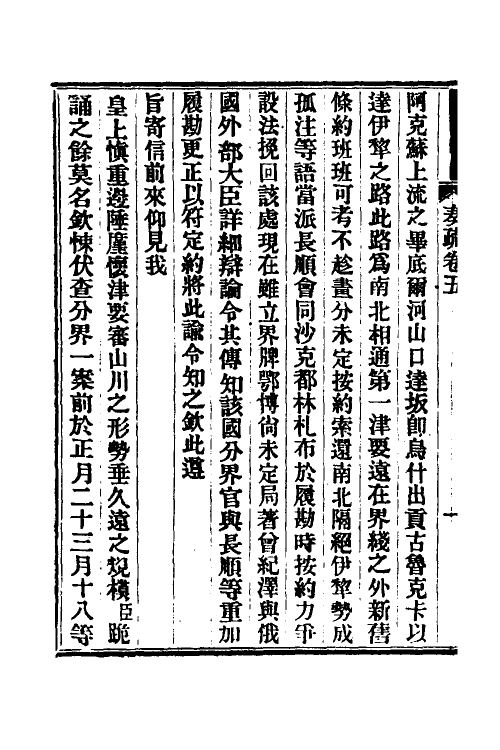 奏疏卷五
阿克蘇上流之畢底爾河山口達坂卽烏什出貢古魯克卡以
達伊犂之路此路爲南北相通第一津要遠在界綫之外新舊
條約班班可考不趁畫分未定按約索還南北隔絕伊犂勢成
孤注等語當派長順會同沙克都林札布於履勘時按約力爭
設法挽回該處現在雖立界牌鄂博尙未定局著曾紀澤與俄
國外部大臣詳細辯論令其傳知該國分界官與長順等重加
履勘更正以符定約將此諭令知之欽此遵
旨寄信前來仰見我
皇上愼重邊陲廑懷津要審山川之形勢垂久遠之規模臣跪
誦之餘莫名欽悚伏查分界一案前於正月二十三月十八等